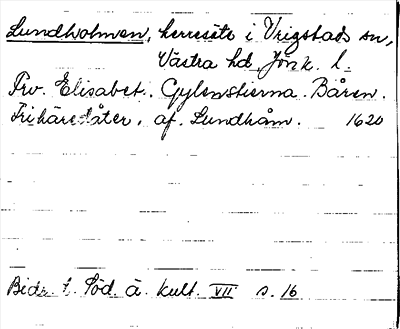 Lundholmen, herresäte i Vrigstads sn,
Västra hd, Jönk. l.
Frv. Elisabet. Gylenstierna. Båren.
Frihäredåter. af. Lundhåm. 1620
Bidr. t. Söd. ä. kult. VII s. 16